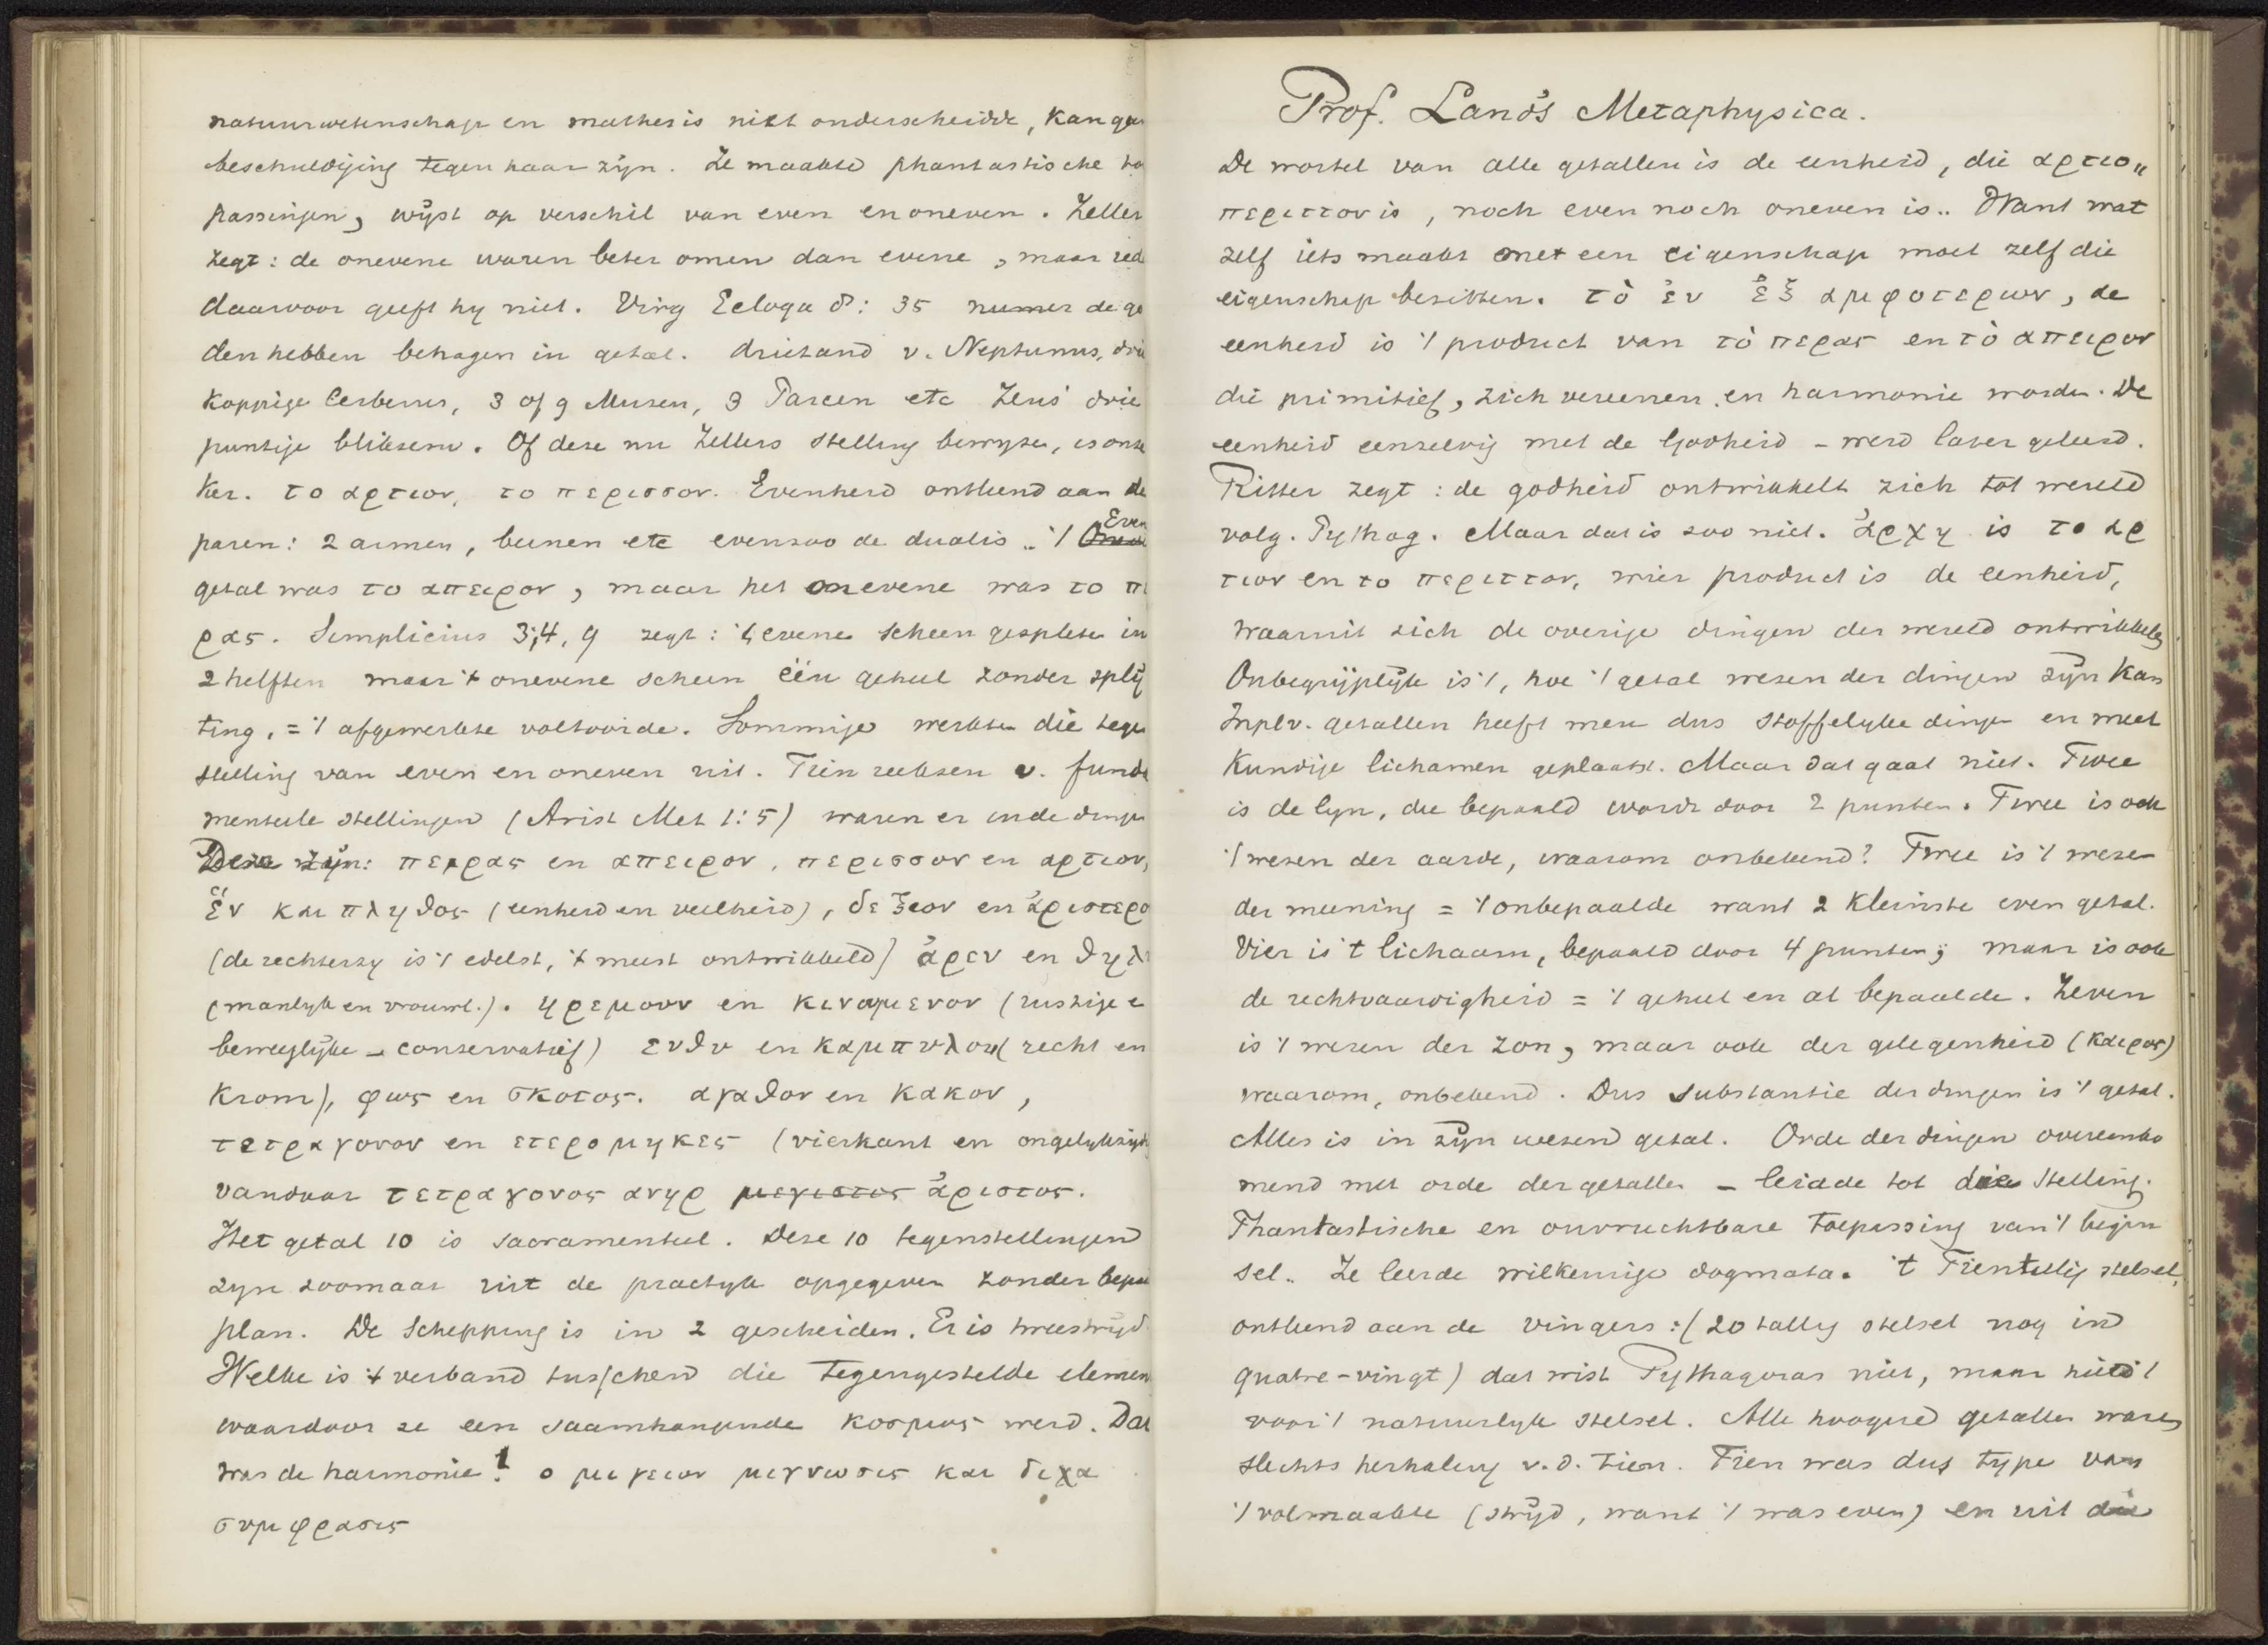 natuurwetenschap en mathesis niet onderscheidde, kan
beschuldiging tegen haar zijn. Ze maakte phantastische
passingen, wijst op verschil van even en oneven. Zeller
zegt: de onevene waren beter omen dan evene, maar
daarvoor geeft hy niet. Virg Ecloga 8: 35 numer de
den hebben behagen in getal. drietand v. Neptunus,
koppige Cerberus, 3 of 9 Musen, 3 Parcen etc Zeus' drie
puntige bliksem. Of deze nu Zellers stelling bewyzen, is onze
ker. το αρτιον, το περισσον. Evenheid ontleend aan de
paren: 2 armen, beenen etc evenzoo de dualis.. 't Even
getal was το απειρον, maar het onevene was το πε
ρας. Simplicius 3;4, 9 zegt: 't evene scheen gespleten in
2 helften maar 't onevene scheen één geheel zonder splij
ting, = 't afgewerkte voltooide. Sommige werkten die tegen
stelling van even en oneven uit. Tien reeksen v. funda
menteele stellingen (Arist Met 1:5) waren er in de dingen
Deze zijn: περρας en απειρον, περισσον en αρτιον,
ἑν και πληθος (eenheid en veelheid), δεξιον en ἀριστερο
(de rechterzy is 't edelst, 't meest ontwikkeld) ἀρεν en θηλ
(manlyk en vrouwl.). ηρεμουν en κινομενον (rustige
beweeglijke – conservatief) ευθυ en καμπυλον (recht en
krom), φως en σκοτος. αγαθον en κακον,
τετραγονον en ετερομηκες (vierkant en ongelykzijd
vandaar τετραγονος ανηρ μεγιστος ἀριστος.
Het getal 10 is sacramenteel. Deze 10 tegenstellingen
zyn zoomaar uit de practyk opgegeven zonder
plan. De schepping is in 2 gescheiden. Er is tweestrijd.
Welke is 't verband tusschen die tegengestelde elemen
waardoor ze een saamhangende κοσμος werd. Dat
was de harmonie! ο μιγεων μιγνωσις και διχα
συμφρασις
Prof. Land's Metaphysica.
De wortel van alle getallen is de eenheid, die αρτιο„
περιττον is, noch even noch oneven is.. Want wat
zelf iets maakt met een eigenschap moet zelf die
eigenschap bezitten. τὸ ἑν ἐξ αμφοτερων, de
eenheid is 't product van τὸ περας en τὸ απειρον
die primitief, zich vereenen en harmonie worden. De
eenheid eenzelvig met de Godheid – werd later geleerd.
Ritter zegt: de godheid ontwikkelt zich tot wereld
volg. Pythag. Maar dat is zoo niet. ἀρχη is το αρ
τιον en το περιττον, wier product is de eenheid,
waaruit zich de overige dingen der wereld ontwikkelen
Onbegrijplijk is 't, hoe 't getal wezen der dingen zijn kan
In pl v. getallen heeft men dus stoffelyke dingen en meet
kundige lichamen geplaatst. Maar dat gaat niet. Twee
is de lyn, die bepaald wordt door 2 punten. Twee is ook
't wezen der aarde, waarom onbekend? Twee is 't wezen
der meening = 't onbepaalde want 2 kleinste even getal.
Vier is 't lichaam, bepaald door 4 punten; maar is ook
de rechtvaardigheid = 't geheel en al bepaalde. Zeven
is 't wezen der zon, maar ook der gelegenheid (καιρος)
waarom, onbekend. Dus substantie der dingen is 't getal.
Alles is in zijn wezen getal. Orde der dingen overeenko
mend met orde der getallen – leidde tot die stelling.
Phantastische en onvruchtbare toepassing van 't begin
sel.. Ze leerde willkeurige dogmata. 't Tientallig stelsel,
ontleend aan de vingers: (20 tallig stelsel nog in
quatre-vingt) dat wist Pythagoras niet, maar hield 't
voor 't natuurlyk stelsel. Alle hoogere getallen waren
slechts herhaling v.d. tien. Tien was dus type van
't volmaakte (strijd, want 't was even) en uit die